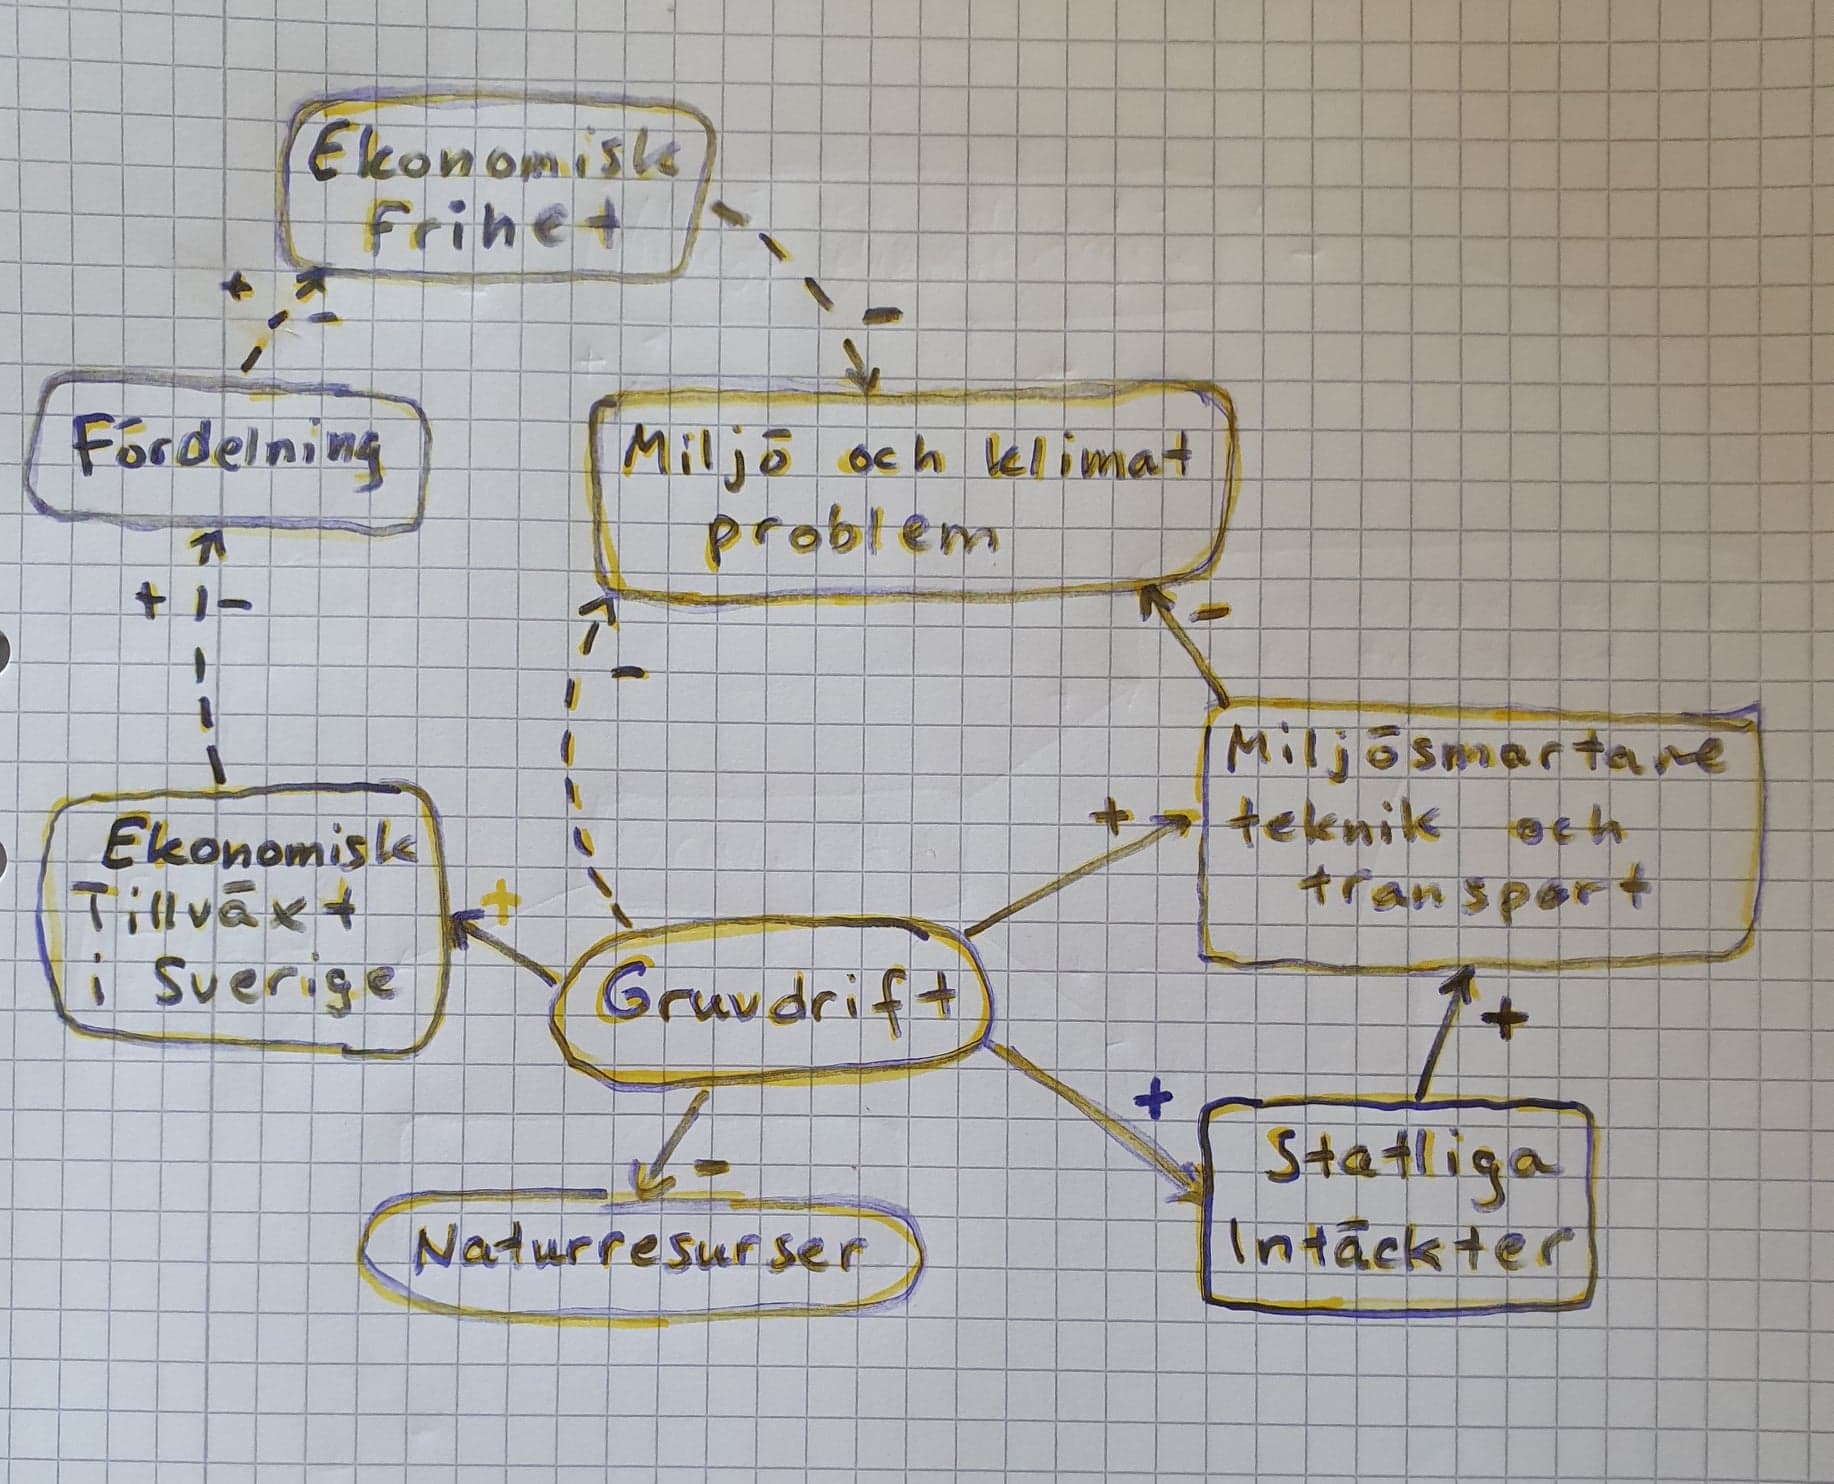 Ekonomisk
frihet
+
-
-
Fördelning
Miljö och klimat
problem
+ -
-
-
Miljösmartare
teknik och
transport
+
Ekonomisk
Tillväxt
i Sverige
+
Gruvdrift
+
+
-
Statliga
Intäckter
Naturresurser